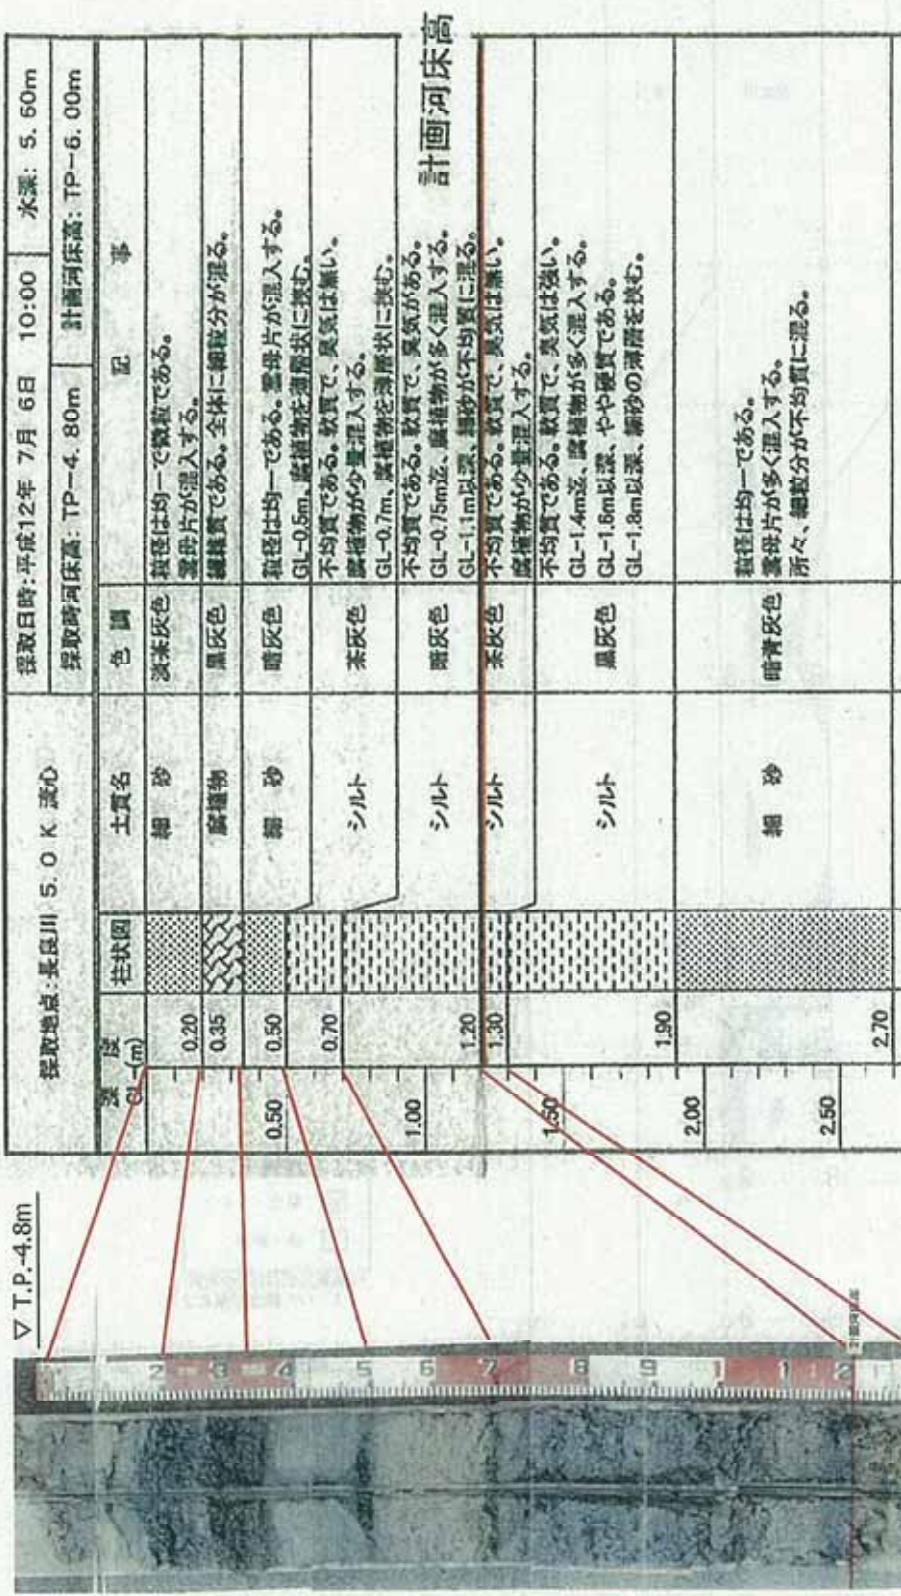 採取地点:長良川 5.0K 流心
採取日時:平成12年 7月 6日 10:00
水深: 5.60m
採取時河床高: TP-4.80m
計画河床高: TP-6.00m
深度
GL-(m)
柱状図
土質名
色調
記事
0.20
細 砂
淡茶灰色
粒径は均一で微粒である。
雲母片が混入する。
0.35
腐植物
黒灰色
繊維質である。全体に細粒分が混る。
0.50
細 砂
暗灰色
粒径は均一である。雲母片が混入する。
GL-0.5m、腐植物を薄層状に挟む。
0.70
シルト
茶灰色
不均質である。軟質で、臭気は無い。
腐植物が少量混入する。
GL-0.7m、腐植物を薄層状に挟む。
1.20
シルト
暗灰色
不均質である。軟質で、臭気がある。
GL-0.75m迄、腐植物が多く混入する。
GL-1.1m以深、細砂が不均質に混る。
計画河床高
1.30
シルト
茶灰色
不均質である。軟質で、臭気は無い。
腐植物が少量混入する。
1.90
シルト
黒灰色
不均質である。軟質で、臭気は強い。
GL-1.4m迄、腐植物が多く混入する。
GL-1.6m以深、やや硬質である。
GL-1.8m以深、細砂の薄層を挟む。
2.70
細 砂
暗青灰色
粒径は均一である。
雲母片が多く混入する。
所々、細粒分が不均質に混る。
0.50
1.00
1.50
2.00
2.50
▽ T.P.-4.8m
2
3
4
5
6
7
8
9
1
1
2